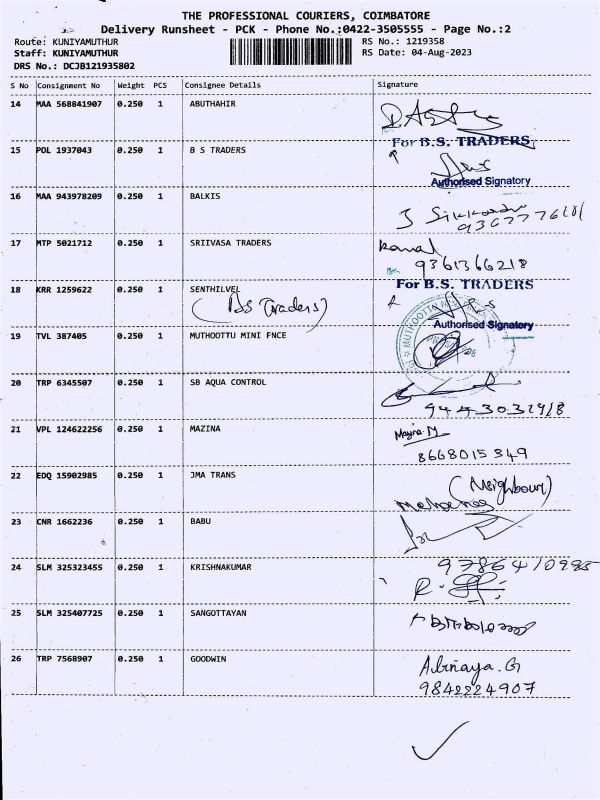 THE PROFESSIONAL COURIERS, COIMBATORE
Delivery Runsheet - PCK - Phone No.:0422-3505555 - Page No.:2
Route: KUNIYAMUTHUR RS No.: 1219358
Staff: KUNIYAMUTHUR RS Date: 04-Aug-2023
DRS No.: DCJB121935802
S No Consignment No Weight PCS Consignee Details Signature
14 MAA 568841907 0.250 1 ABUTHAHIR
For B.S. TRADERS
15 POL 1937043 0.250 1 B S TRADERS
Authorised Signatory
16 MAA 943978209 0.250 1 BALKIS
17 MTP 5021712 0.250 1 SRIIVASA TRADERS
9361366218
For B.S. TRADERS
18 KRR 1259622 0.250 1 SENTHILVEL
(BS Traders)
Authorised Signatory
19 TVL 387405 0.250 1 MUTHOOTTU MINI FNCE
20 TRP 6345507 0.250 1 SB AQUA CONTROL
21 VPL 124622256 0.250 1 MAZINA
8668015349
22 EDQ 15902985 0.250 1 JMA TRANS
(Neighbour)
23 CNR 1662236 0.250 1 BABU
24 SLM 325323455 0.250 1 KRISHNAKUMAR
25 SLM 325407725 0.250 1 SANGOTTAYAN
26 TRP 7568907 0.250 1 GOODWIN
Abinaya. G
9842224907